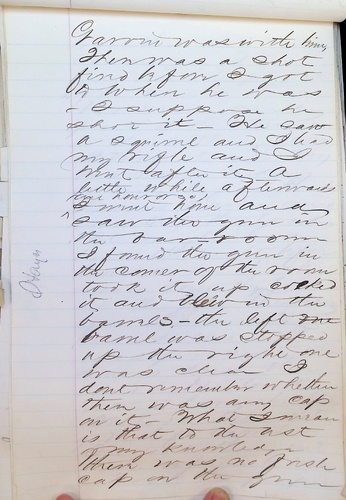 Garvin was with him
There was a shot
fired before I got
to where he was
- I suppose he
shot it - He saw
a squirrel and I had
my rifle and I
went after it A
little while afterwards
one hour or so
I went home and
saw the gun in
the bar-room
I found the gun in
the corner of the room
took it up cocked
it and blew in the
barrels - the left one
barrel was stopped
up the right one
was clear I
dont remember whether
there was any cap
on it - What I mean
is that to the best
of my knowledge
there was no fresh
cap on the gun